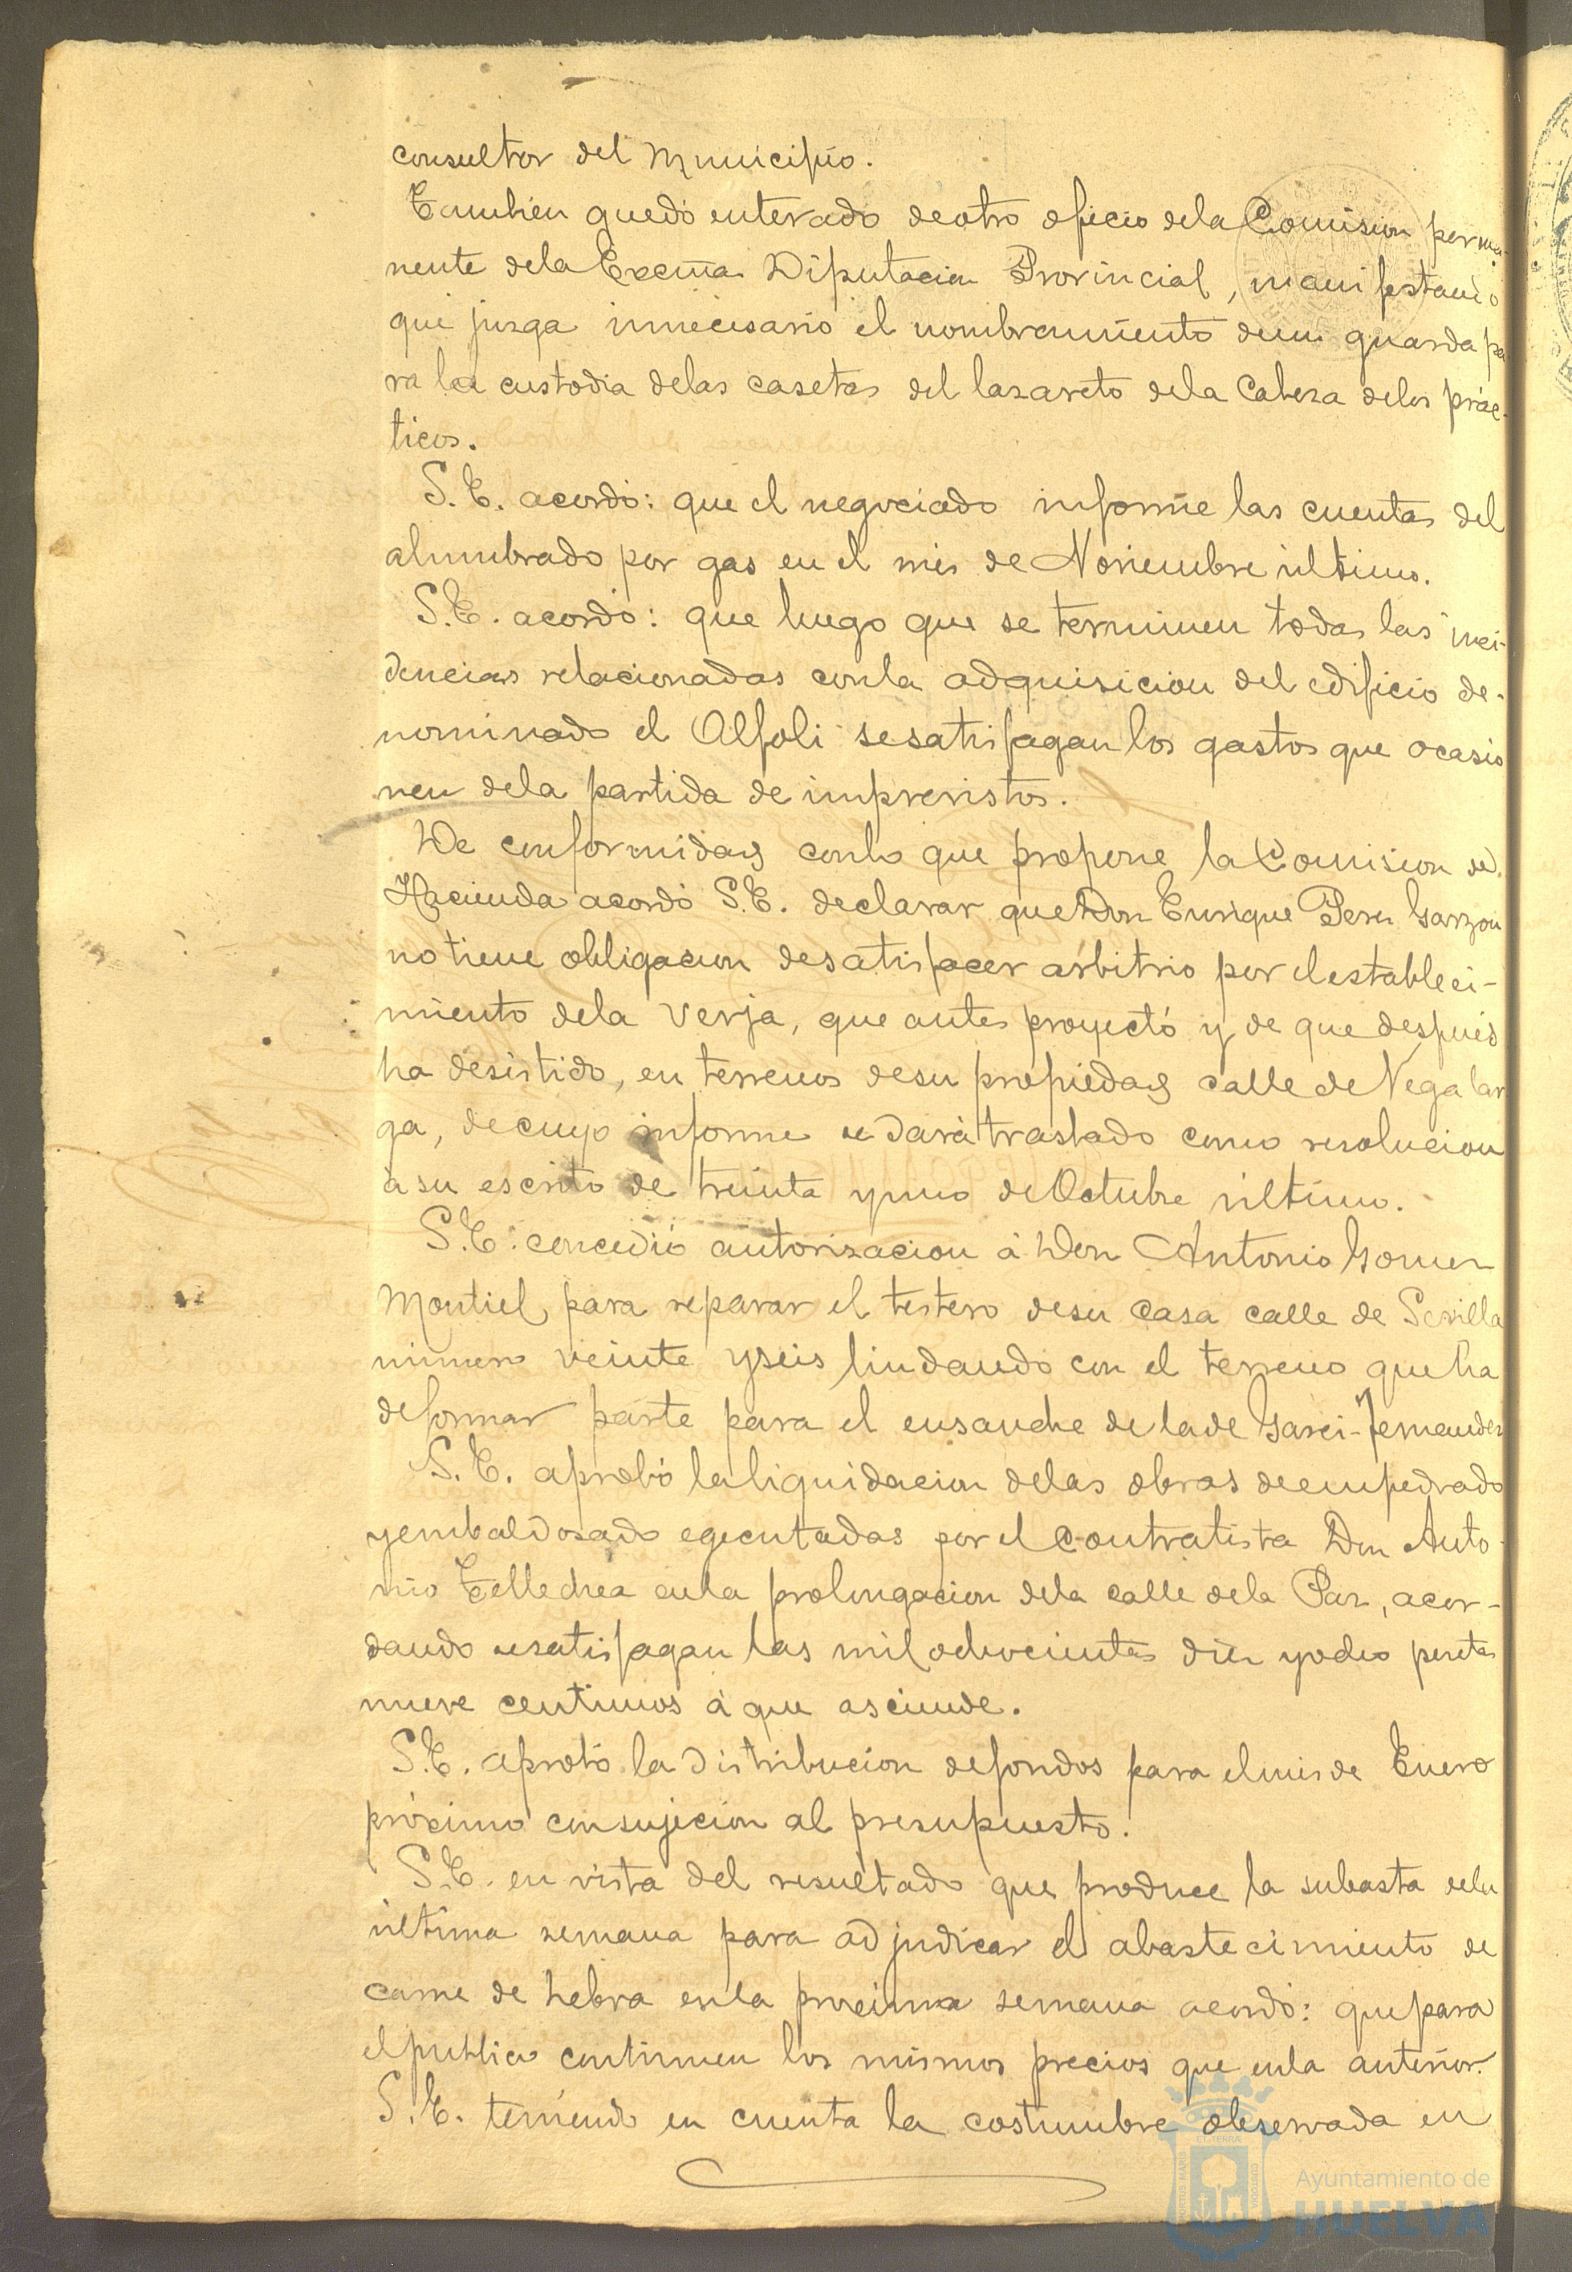 consultor del Municipio.
Tambien quedó enterado de otro oficio de la Comision perma-
nente de la Excma Diputacion Provincial, manifestando
que juzga innecesario el nombramiento de un guarda pa
ra la custodia de las casetas del lazareto de la Cabeza de los prác-
ticos.
S.E. acordó: que el negociado informe las cuentas del
alumbrado por gas en el mes de Noviembre último.
S.E. acordó: que luego que se terminen todas las inci-
dencias relacionadas con la adquisicion del edificio de-
nominado el Alfoli se satisfagan los gastos que ocasio
nen de la partida de imprevistos.
De conformidad con lo que propone la Comision de
Hacienda acordó S.E. declarar que Don Enrique Perez Garzon
no tiene obligacion de satisfacer arbitrio por el estableci-
miento de la verja, que antes proyectó y de que despues
ha desistido, en terrenos de su propiedad calle de Vega lar
ga, de cuyo informe se dará traslado como resolucion
á su escrito de treinta y uno de Octubre último.
S.E. concedió autorizacion á Don Antonio Gomez
Montiel para reparar el testero de su casa calle de Sevilla
número veinte y seis lindando con el terreno que ha
de formar parte para el ensanche de la de Garci-Fernandez
S.E. aprobó la liquidacion de las obras de empedrado
y embaldosado egecutadas por el contratista Don Anto-
nio Tellechea en la prolongacion de la calle de la Paz, acor-
dando se satisfagan las mil ochocientas diez y ocho pesetas
nueve centimos á que asciende.
S.E. aprobó la distribucion de fondos para el mes de Enero
próximo con sujecion al presupuesto.
S.E. en vista del resultado que produce la subasta de la
última semana para adjudicar el abastecimiento de
carne de hebra en la procsima semana acordó: que para
el publico continuen los mismos precios que en la anterior.
S.E. teniendo en cuenta la costumbre observada en
Ayuntamiento de
HUELVA